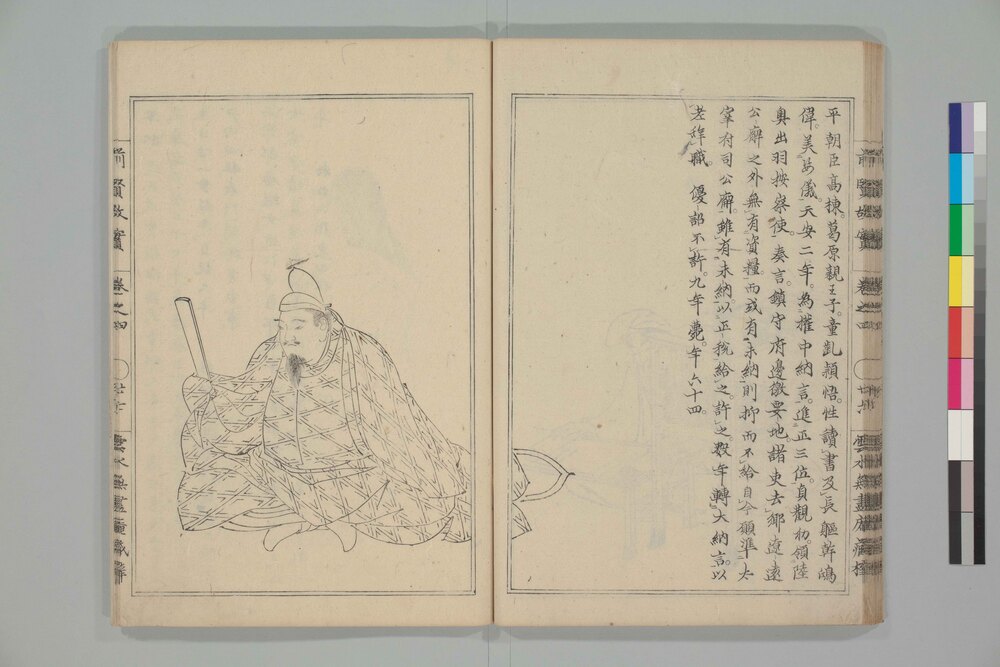 平朝臣高棟。葛原親王子。童齓穎悟。性讀書。及長軀幹鴻
偉。美姿儀。天安二年。為權中納言。進正三位。貞觀初。領陸
奥出羽按察使。奏言。鎮守府邊徼要地。諸吏去鄉遼遠
公廨之外無有資糧。而或有未納。則抑而不給。自今願準太
宰府司公廨。雖有未納。以正稅給之。許之。數年轉大納言。以
老辞職。優詔不許。九年薨。年六十四。
前賢故實
卷之四
前賢故實
卷之四
雲水無盡庵藏